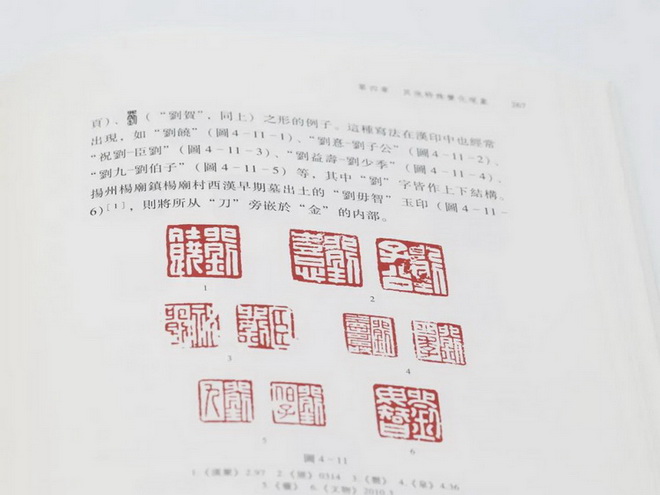 第四章 267
頁）、（“劉賀”，同上）之形的例子。這種寫法在漢印中也經常
出現，如“劉饒”（圖4-11-1）、“劉意-劉子公”（圖4-11-2）、
“祝劉-臣劉”（圖4-11-3）、“劉益壽-劉少季”（圖4-11-4）、
“劉九-劉伯子”（圖4-11-5）等，其中“劉”字皆作上下結構。
揚州楊廟鎮楊廟村西漢早期墓出土的“劉毋智”玉印（圖4-11-
6）[1]，則將所从“刀”旁嵌於“金”的内部。
1 2
3 4
5 6
圖4-11
1.《漢聚》2.97 2.《 》0314 3.《 》 4.《 》4.36
5.《 》 6.《文物》2010.3